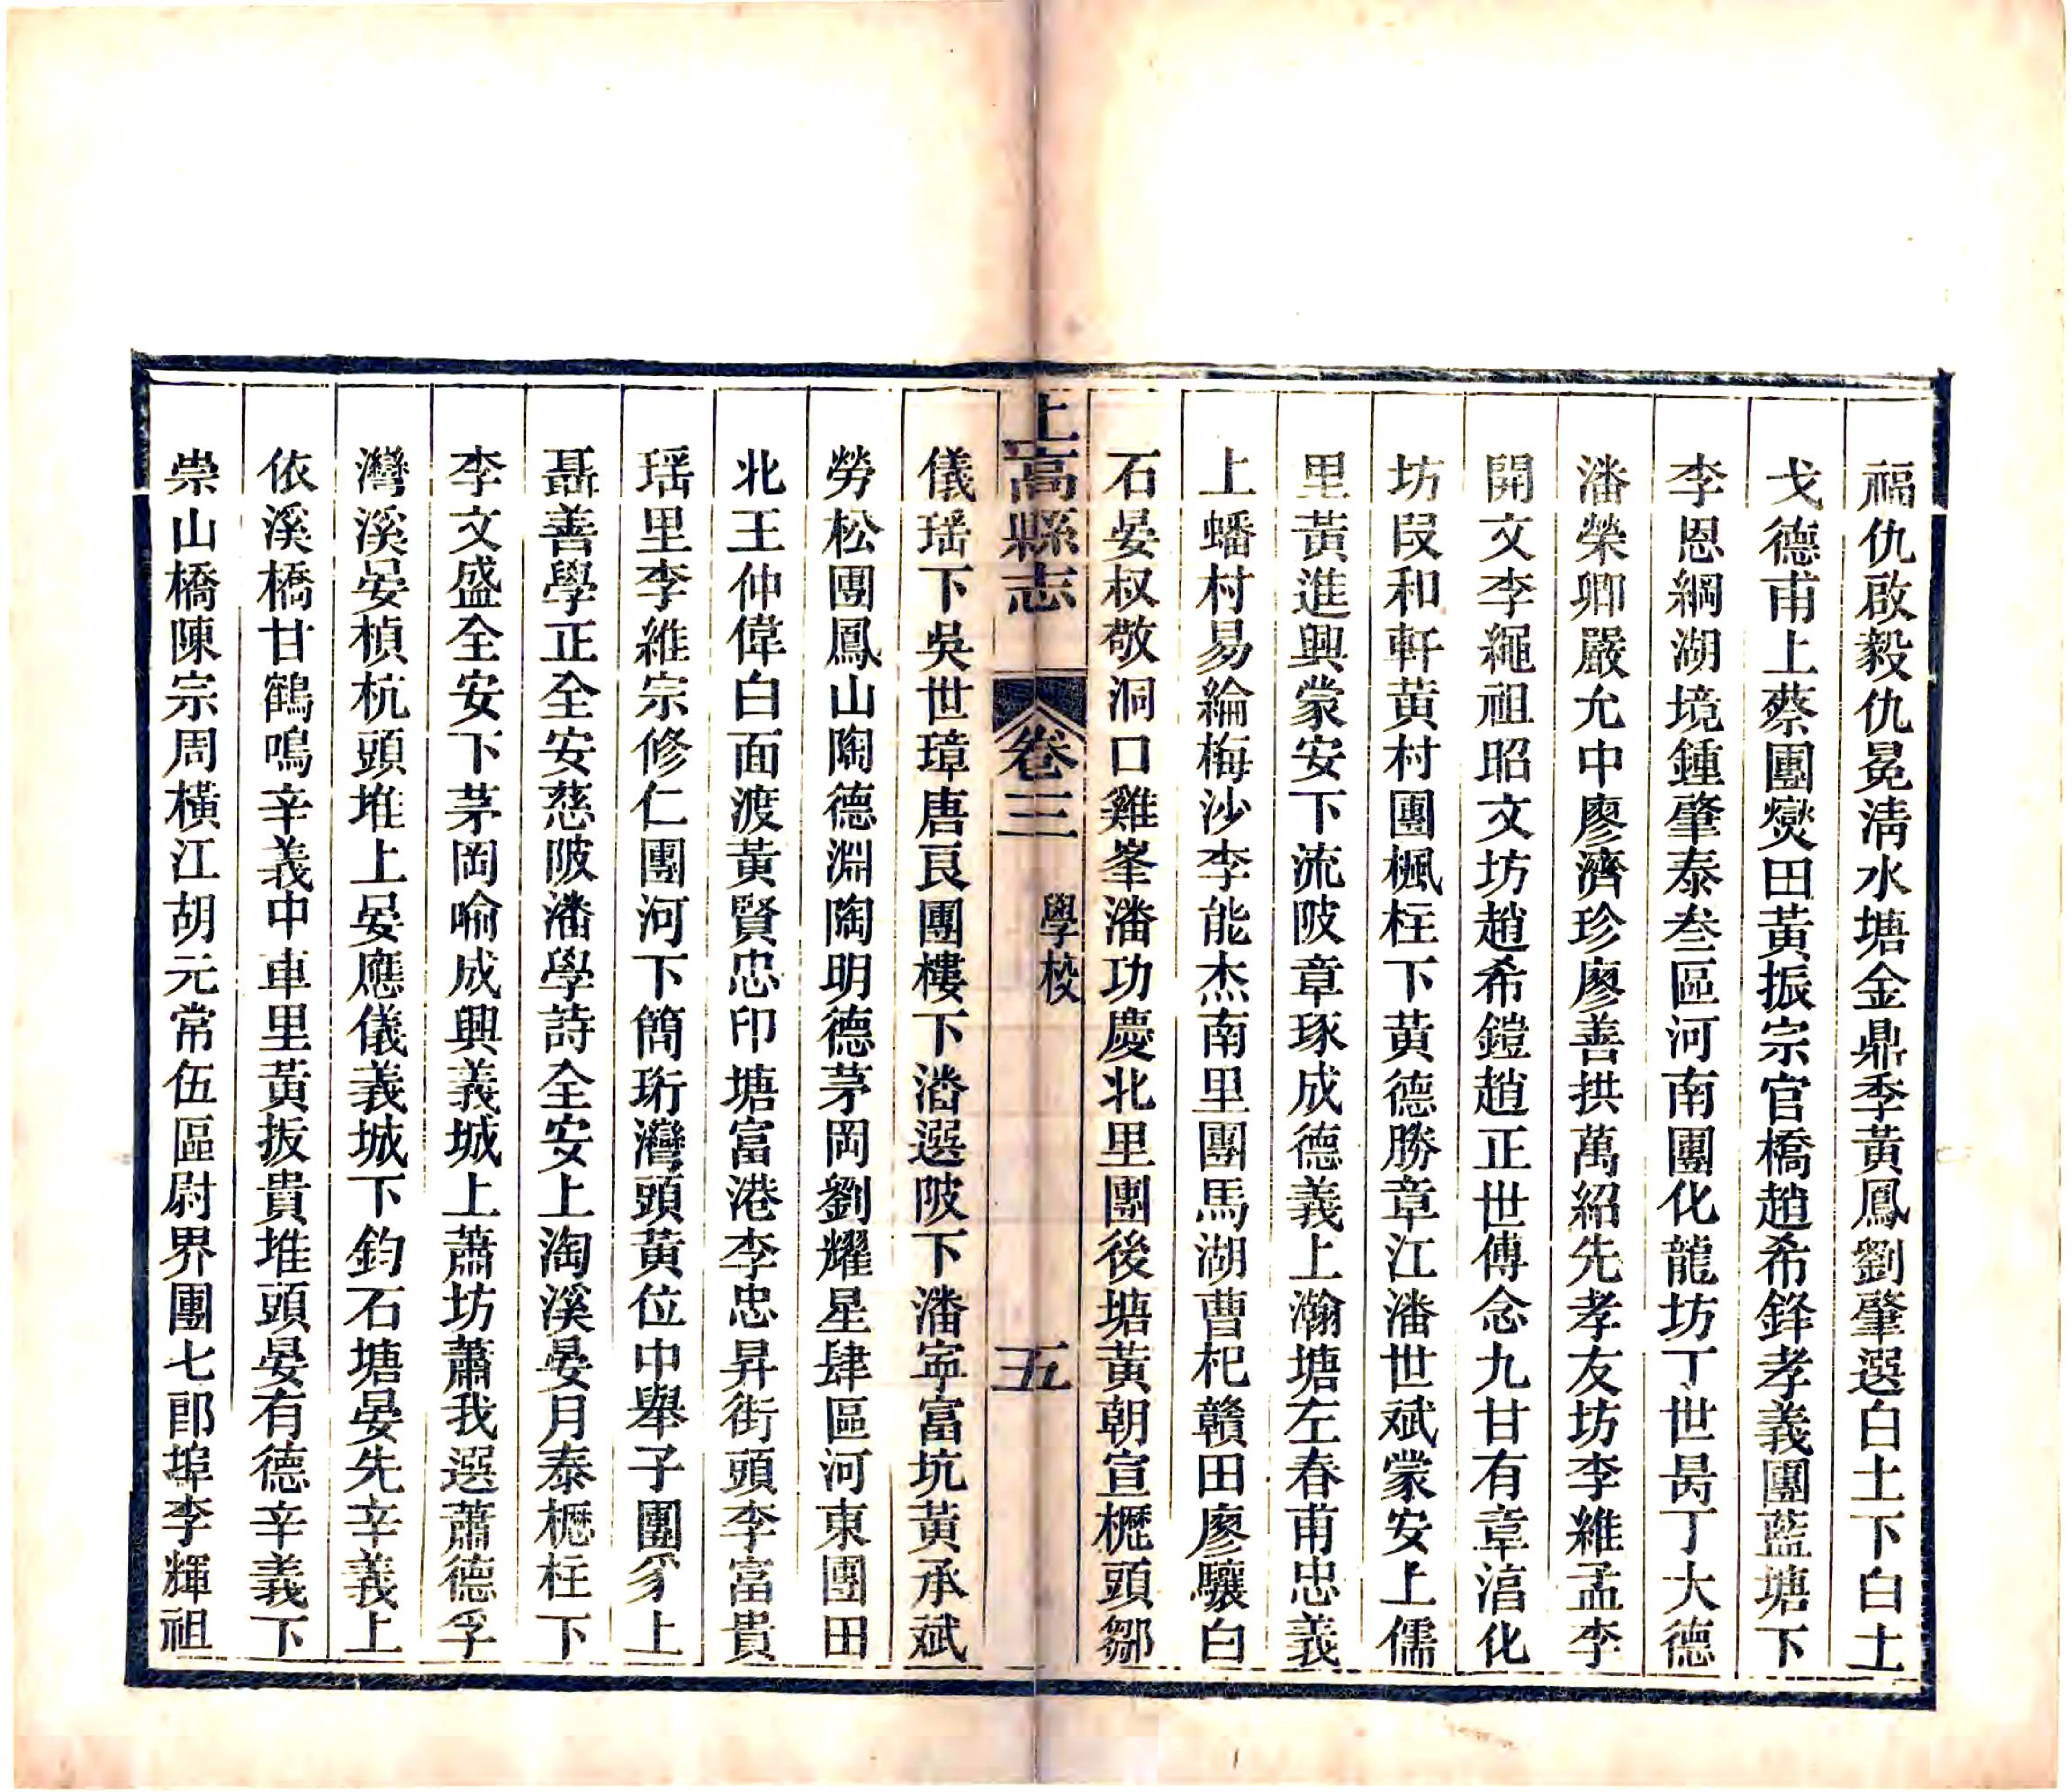 福仇啟毅仇冕淸水塘金鼎季黃鳳劉肇選白土下白土
戈德甫上蔡團爕田黃振宗官橋趙希鋒孝義團藍塘下
李恩綱湖境鍾肇泰叁區河南團化龍坊丁世昺丁大德
潘榮卿嚴允中廖濟珍廖善拱萬紹先孝友坊李維孟李
開文李繩祖昭文坊趙希鎧趙正世傅念九甘有章㴠化
坊段和軒黃村團楓柱下黃德勝章江潘世斌蒙安上儒
里黃進興蒙安下流陂章琢成德義上瀚塘左春甫忠義
上蟠村易綸梅沙李能杰南里團馬湖曹杞贛田廖驤白
石晏权敬洞口雞峯潘功慶北里團後塘黃朝宣櫪頭鄒
上高縣志 卷三 學校 五
儀瑶下吳世璋唐良團樓下潘選陂下潘寜富坑黃承斌
勞松團鳳山陶德淵陶明德茅岡劉耀星肆區河東團田
北王仲偉白面渡黃賢忠印塘富港李忠昇街頭李富貴
瑶里李維宗修仁團河下簡珩灣頭黃位中舉子團豸上
聶善學正全安慈陂潘學詩全安上淘溪晏月泰櫪柱下
李文盛全安下茅岡喻成興義城上蕭坊蕭我選蕭德孚
灣溪晏楨杭頭堆上晏應儀義城下鈞石塘晏先辛義上
依溪橋甘鶴鳴辛義中車里黃扳貴堆頭晏有德辛義下
崇山橋陳宗周橫江胡元常伍區尉界團七郎埠李輝祖